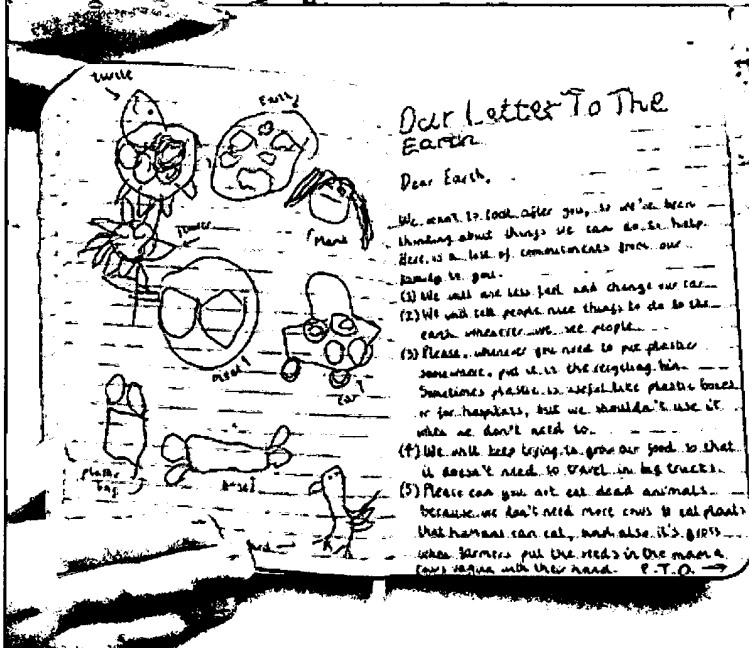 turtle
Earth
Mama
flower
meat
car
plastic
bag
Our Letter To The
Earth
Dear Earth,
We want to look after you, so we've been
thinking about things we can do to help.
Here is a list of commitments from our
family to you.
(1) We will use less fuel and change our car
(2) We will tell people nice things to do to the
earth whenever we see people.
(3) Please, whenever you need to put plastic
somewhere, put it in the recycling bin.
Sometimes plastic is useful like plastic boxes
or for hospitals, but we shouldn't use it
when we don't need to.
(4) We will keep trying to grow our food so that
it doesn't need to travel in big trucks.
(5) Please can you not eat dead animals
because we don't need more cows to eat plants
that humans can eat, and also it's gross
when farmers put the seeds in the mama
cows vagina with their hand. P.T.O. →